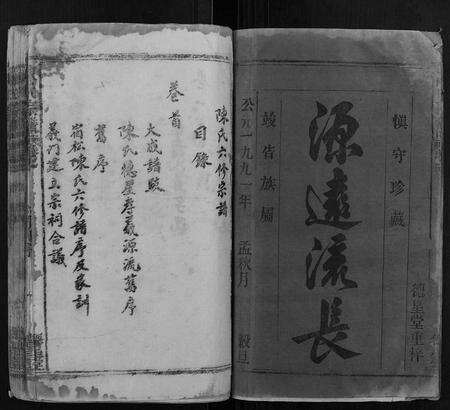 慎守珍藏
德星堂重梓
源遠流長
竣告族屬
公元一九九一年 孟秋月 穀旦
陳氏六修宗譜
目錄
卷首
大成譜跋
陳氏德星孝義源流舊序
舊序
宿松陳氏六修譜序及家訓
義門建立宗祠合議